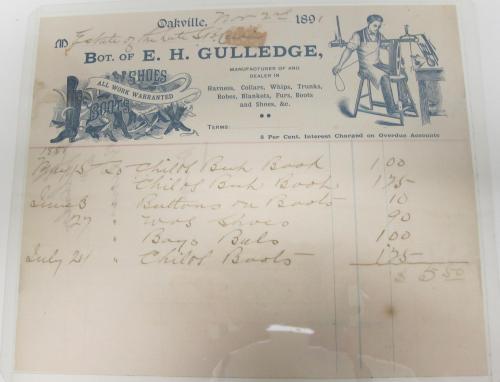 Oakville, Nov 2nd 1891
M Estate of the late
BOT. OF E. H. GULLEDGE,
SHOES
ALL WORK WARRANTED
BOOTS
MANUFACTURER OF AND
DEALER IN
Harness, Collars, Whips, Trunks,
Robes, Blankets, Furs, Boots
and Shoes, &c.
TERMS:
8 Per Cent. Interest Charged on Overdue Accounts
To Childs Buh Book 1.00
" Childs Buh Book 1.75
June 8 " Buttons on Boots 10
27 " Shoes 90
" Boys Bals 1.00
July 21 " Childs Boots 1.75
$ 5.50